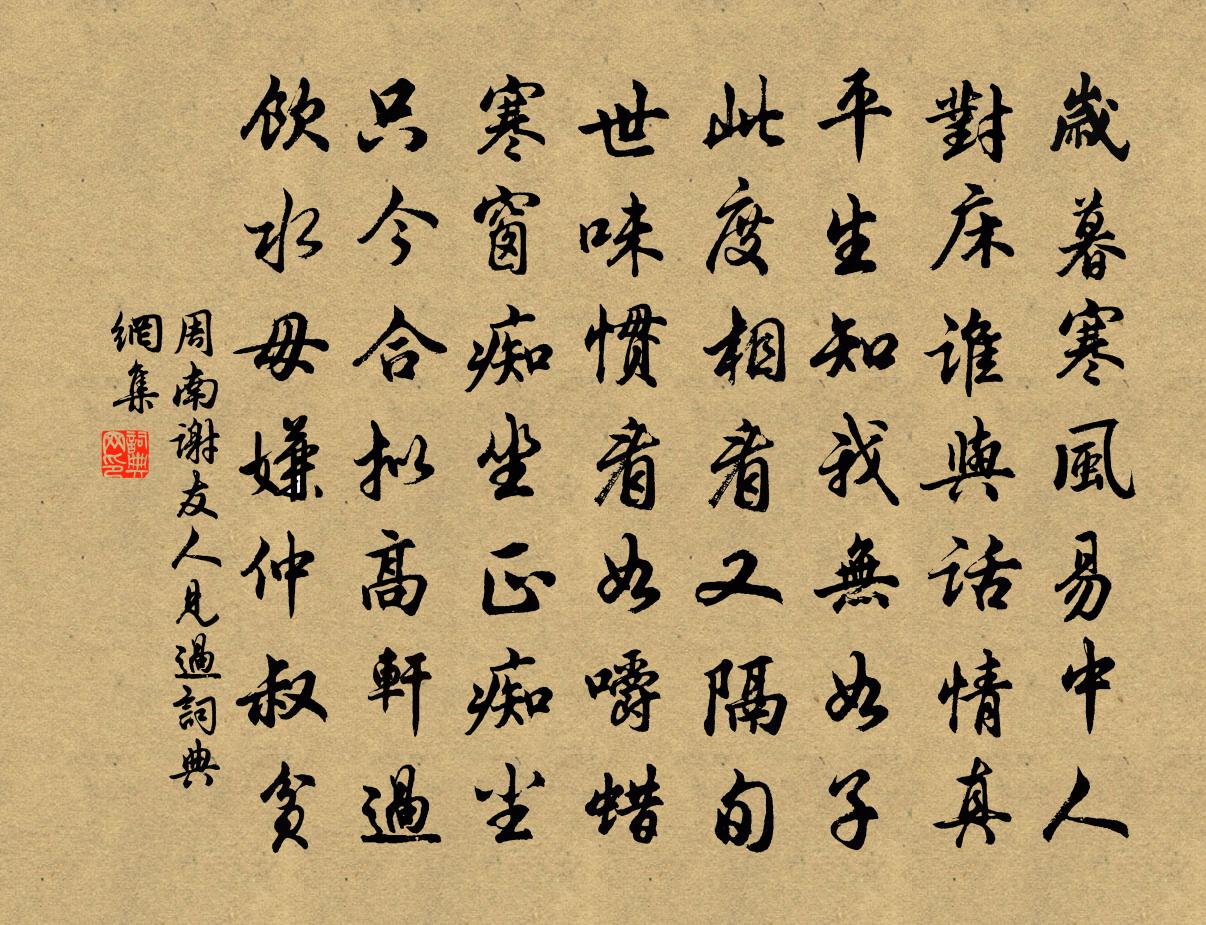 歲暮寒風易中人
對床誰與話情真
平生知我無如子
此度相看又隔旬
世味慣看如嚼蜡
寒窗痴坐正痴坐
只今合拟高軒過
飲水毋嫌仲叔貧
周南謝友人見過詞典
網集
詞典
网印